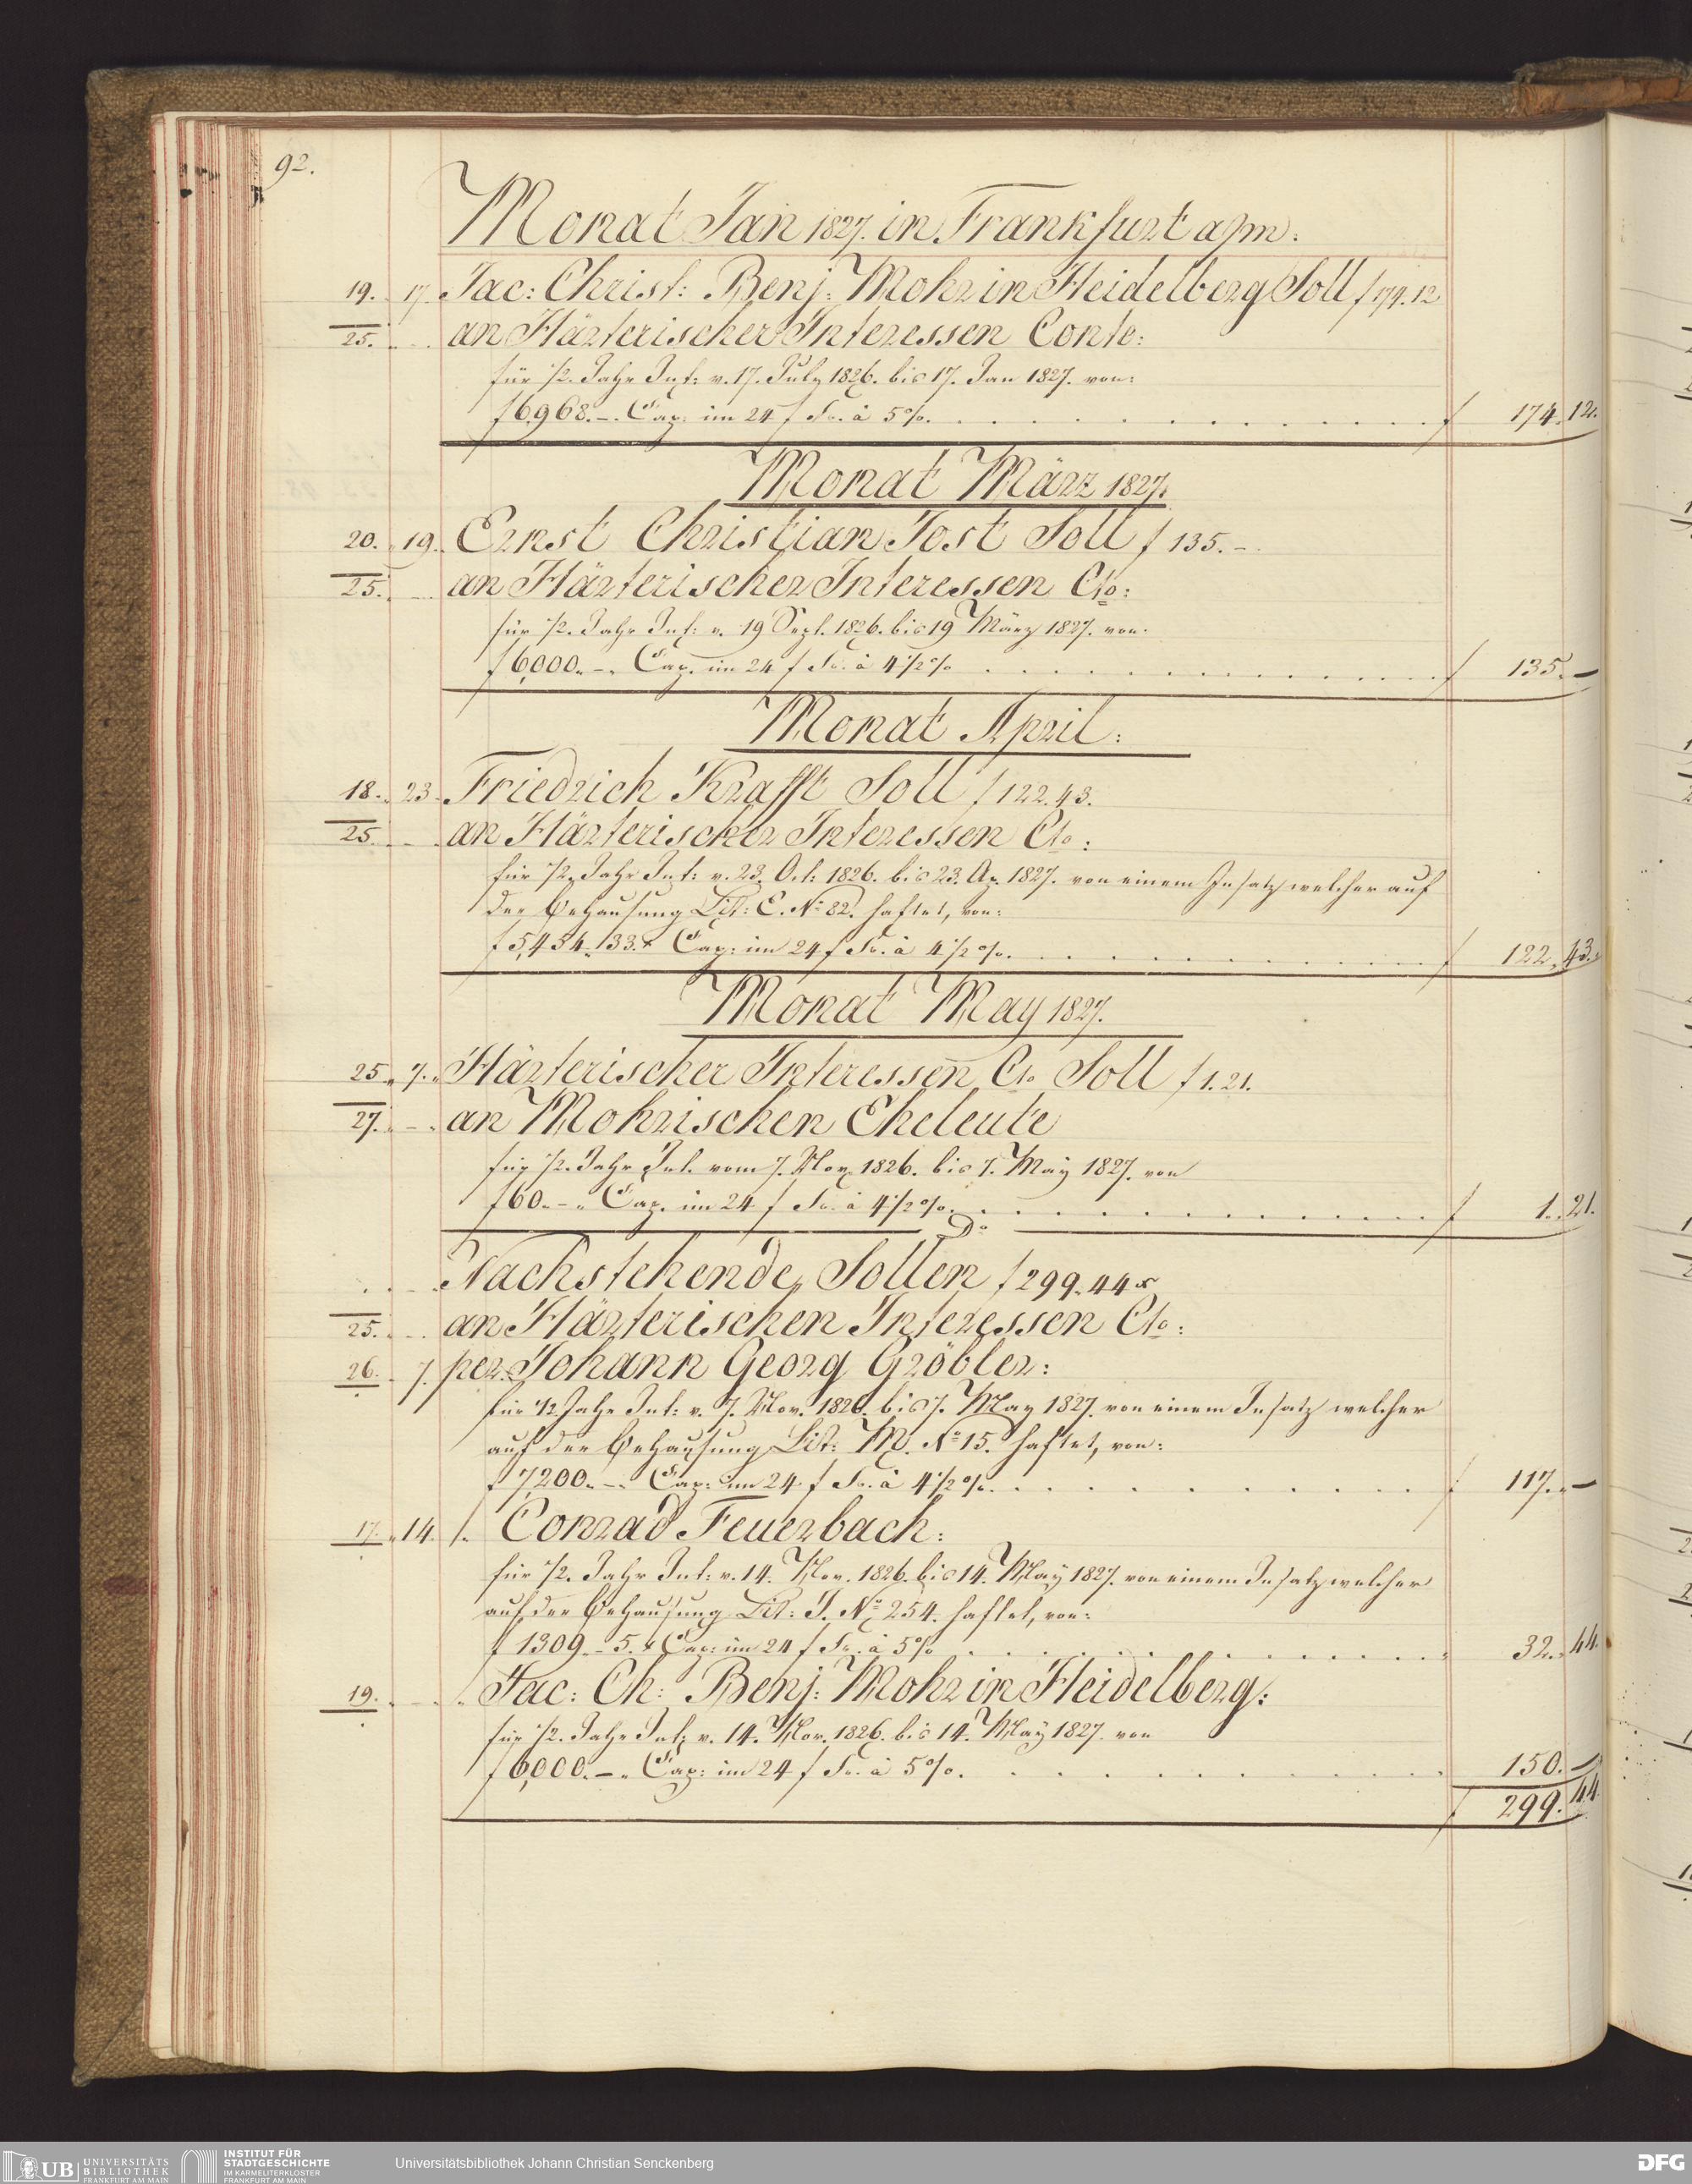 92.
Monat Jan 1827. in Frankfurt a/m:
19. 17. Jac: Christ: Benj: Mohr in Heidelberg Soll f 174.12
25. an Härterischer Interessen Conto:
für 1/2. Jahr Int: v. 17. July 1826. bis 17. Jan 1827. von:
f 6,968.-. Cap: im 24 f Fs. à 5%. f 174. 12.
Monat März 1827.
20. 19. Ernst Christian Jost Soll f 135.-.
25. an Härterischer Interessen Cto:
für 1/2. Jahr Int: v. 19 Sept. 1826. bis 19 März 1827. von:
f 6,000.-. Cap. im 24 f Fs. à 4 1/2% f 135.-
Monat April:
18. 23. Friedrich Krafft Soll f 122.43.
25. an Härterischer Interessen Cto:
für 1/2. Jahr Int: v. 23. Oct: 1826. bis 23. Ap. 1827. von einem Insatz welcher auf
der Behausung Lit: E. No 82. haftet, von:
f 5,454.33.x Cap: im 24 f Fs. à 4 1/2%. f 122. 43.
Monat May 1827.
25. 7. Härterischer Interessen Cto Soll f 1.21.
27. an Mohrischen Eheleute
für 1/2. Jahr Int. vom 7. Nov. 1826. bis 7. May 1827. von
f 60.-. Cap. im 24 f Fs. à 4 1/2%. f 1. 21.
Do
Nachstehende Sollen f 299.44 x
25. an Härterischen Interessen Cto:
26. 7. per Johann Georg Gröbler:
für 1/2 Jahr Int: v. 7. Nov. 1826. bis 7. May 1827. von einem Insatz welcher
auf der Behausung Lit: M. No 15. haftet, von:
f 7,200.-. Cap: im 24 f Fs. à 4 1/2%. f 117.-
17. 14. /. Conrad Feuerbach:
für 1/2. Jahr Int: v. 14. Nov. 1826. bis 14. May 1827. von einem Insatz welcher
auf der Behausung Lit: J. No 254. haftet, von:
f 1309.-5.x Cap: im 24 f Fs. à 5% 32. 44.
19. Jac: Ch: Benj: Mohr in Heidelberg:
für 1/2. Jahr Int: v. 14. Nov. 1826. bis 14. May 1827. von
f 6,000.-. Cap: im 24 f Fs. à 5%. 150.-
f 299. 44.
UB UNIVERSITÄTS BIBLIOTHEK FRANKFURT AM MAIN
INSTITUT FÜR STADTGESCHICHTE IM KARMELITERKLOSTER FRANKFURT AM MAIN
Universitätsbibliothek Johann Christian Senckenberg
DFG